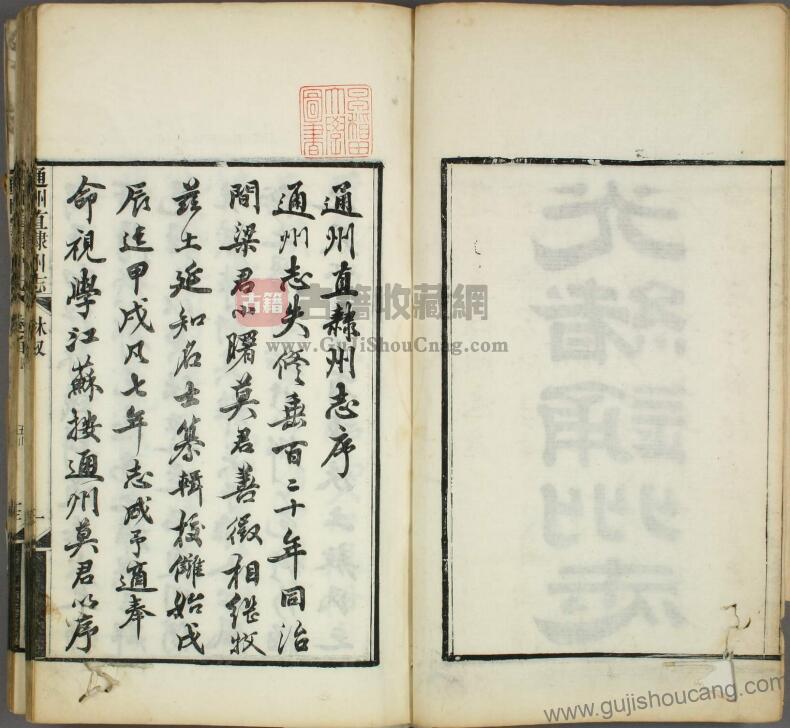 通州直隸州志序
通州志失修垂百二十年同治
間梁君小曙莫君善徵相繼牧
茲土延知名士纂輯校讎始戊
辰迄甲戌凡七年志成予適奉
命視學江蘇按通州莫君以序
通州直隸州志
林叙
一
早稲田
大學
圖書
古籍
古籍收藏网
www.GuJiShouCnag.com
www.gujishoucang.com